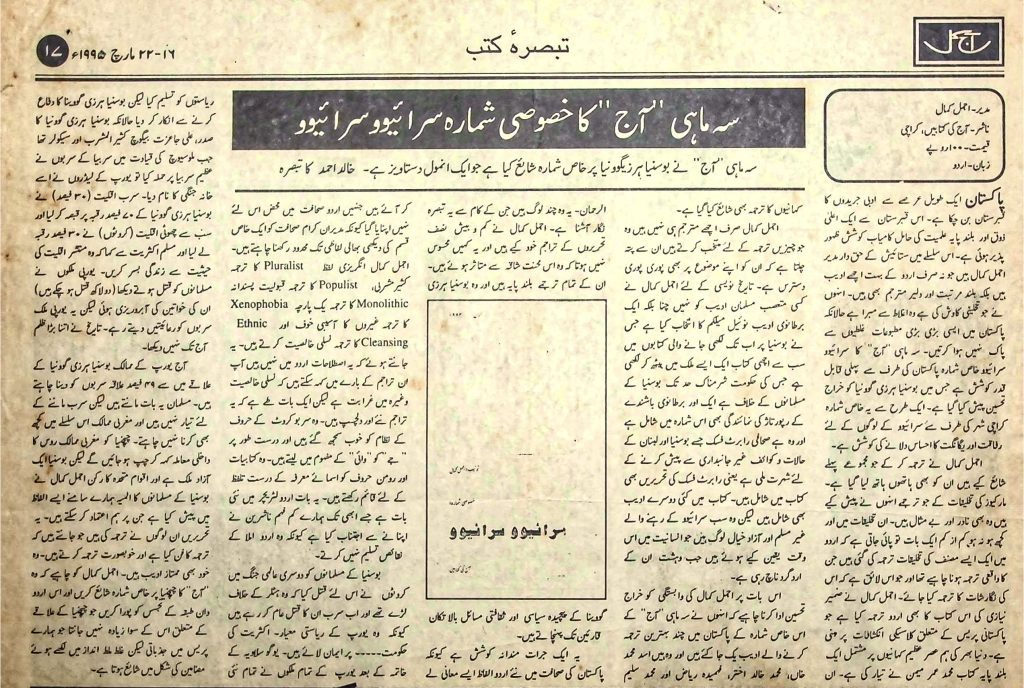 آج کل
تبصرۂ کتب
۱۶-۲۲ مارچ ۱۹۹۵ء
۱۷
مدیر۔ اجمل کمال
ناشر۔ آج کی کتابیں، کراچی
قیمت۔ ۱۰۰ روپے
زبان۔ اردو
سہ ماہی "آج" کا خصوصی شمارہ سرائیوو سرائیوو
سہ ماہی "آج" نے بوسنیا ہرزیگوونیا پر خاص شمارہ شائع کیا ہے جو ایک انمول دستاویز ہے۔ خالد احمد کا تبصرہ
پاکستان ایک طویل عرصے سے ادبی جریدوں کا
قبرستان بن چکا ہے۔ اس قبرستان سے ایک اعلیٰ
ذوق اور بلند پایہ علمیت کی حامل کامیاب کوشش ظہور
پذیر ہوئی ہے۔ اس سلسلے میں ستائش کے حق دار مدیر
اجمل کمال ہیں جو نہ صرف اردو کے بہت اچھے ادیب
ہیں بلکہ بلند مرتبت اور دلیر مترجم بھی ہیں۔ انہوں
نے جو تخلیقی کاوش کی ہے وہ اغلاط سے مبرا ہے حالانکہ
پاکستان میں ایسی بڑی بڑی مطبوعات غلطیوں سے
پاک نہیں ہوا کرتیں۔ سہ ماہی "آج" کا سرائیوو
سرائیوو خاص شمارہ پاکستان کی طرف سے پہلی قابل
قدر کوشش ہے جس میں بوسنیا ہرزی گوونیا کو خراج
تحسین پیش کیا گیا ہے۔ ایک طرح سے یہ خاص شمارہ
کراچی شہر کی طرف سے سرائیوو کے لوگوں کے لئے
رفاقت اور یگانگت کا احساس دلانے کی کوشش ہے۔
اجمل کمال نے ترجمہ کر کے جو مجموعے پہلے
پیش کئے ہیں ان کو بھی ہاتھوں ہاتھ لیا گیا ہے۔
مارکیز کی تخلیقات کے جو ترجمے انہوں نے پیش کیے
ہیں وہ بھی نادر اور بے مثال ہیں۔ ان تخلیقات میں اور
کچھ ہو نہ ہو کم از کم ایک بات تو پائی جاتی ہے کہ اردو
میں ایک ایسے مصنف کی تخلیقات ترجمہ کی گئی ہیں جن
کا واقعی ترجمہ ہونا چاہیے تھا اور جو اس لائق ہے کہ اس
کی نگارشات کا ترجمہ کیا جائے۔ اجمل کمال نے ضمیر
نیازی کی اس کتاب کا بھی اردو ترجمہ کیا ہے جو
پاکستانی پریس کے متعلق کلاسیکی انکشافات پر مبنی
ہے۔ دنیا بھر کی ہم عصر عظیم کہانیوں پر مشتمل ایک
بلند پایہ کتاب محمد عمر میمن نے تیار کی ہے۔ ان
کہانیوں کا ترجمہ بھی شائع کیا گیا ہے۔
اجمل کمال صرف اچھے مترجم ہی نہیں ہیں وہ
جو چیزیں ترجمہ کے لئے منتخب کرتے ہیں ان سے پتہ
چلتا ہے کہ ان کو اپنے موضوع پر بھی پوری پوری
دسترس ہے۔ تاریخ نویسی کے لئے اجمل کمال نے
کسی متعصب مسلمان ادیب کو نہیں چنا بلکہ ایک
برطانوی ادیب نوئیل میلکم کا انتخاب کیا ہے جس
نے بوسنیا پر اب تک لکھی جانے والی کتابوں میں
سب سے اچھی کتاب ایک ایسے ملک میں بیٹھ کر لکھی
ہے جس کی حکومت شرمناک حد تک بوسنیا کے
مسلمانوں کے خلاف ہے ایک اور برطانوی باشندے
کے رپورتاژ کی نمائندگی بھی اس شمارہ میں شامل ہے
اور وہ ہے صحافی رابرٹ فسک جسے بوسنیا اور لبنان کے
حالات و کوائف غیر جانبداری سے پیش کرنے کے
لئے شہرت ملی ہے یعنی رابرٹ فسک کی تحریریں بھی
کتاب میں شامل ہیں۔ کتاب میں کئی دوسرے ادیب
بھی شامل ہیں لیکن وہ سب سرائیوو کے رہنے والے
غیر مسلم اور آزاد خیال لوگ ہیں جو انسانیت میں اس
وقت یقین کیے ہوئے ہیں جب وحشت ان کے
ارد گرد ناچ رہی ہے۔
اس بات پر اجمل کمال کی وابستگی کو خراج
تحسین ادا کرنا چاہیے کہ انہوں نے سہ ماہی "آج" کے
اس خاص شمارہ کے پاکستان میں چند بہترین ترجمہ
کرنے والے ادیب یک جا کئے ہیں اور وہ ہیں اسد محمد
خاں، محمد خالد اختر، فہمیدہ ریاض اور محمد سلیم
الرحمان۔ یہ وہ چند لوگ ہیں جن کے کام سے یہ تبصرہ
نگار آشنا ہے۔ اجمل کمال نے کم و بیش نصف
تحریروں کے تراجم خود کیے ہیں اور یہ کہیں محسوس
نہیں ہوتا کہ وہ اس محنت شاقہ سے متاثر ہوئے ہیں۔
ان کے تمام ترجمے بلند پایہ ہیں اور وہ بوسنیا ہرزی
سرائیوو سرائیوو
گوونیا کے پیچیدہ سیاسی اور ثقافتی مسائل بالا تکان
قارئین تک پہنچاتے ہیں۔
یہ ایک جرات مندانہ کوشش ہے کیونکہ
پاکستان کی صحافت میں نئے اردو الفاظ ایسے معانی لے
کر آئے ہیں جنہیں اردو صحافت میں محض اس لئے
نہیں اپنایا گیا کیونکہ مدیران کرام صحافت کو ایک خاص
قسم کی دیکھی بھالی لفاظی تک محدود رکھنا چاہتے ہیں۔
اجمل کمال انگریزی لفظ Pluralist کا ترجمہ
کثیر مشربی، Populist کا ترجمہ قبولیت پسندانہ
Monolithic کا ترجمہ یک پارچہ Xenophobia
کا ترجمہ غیروں کا آسیبی خوف اور Ethnic
Cleansing کا ترجمہ نسلی خالصیت کرتے ہیں۔ یہ
جانتے ہوئے کہ یہ اصطلاحات اردو میں نہیں ہیں آپ
ان تراجم کے بارے میں کہہ سکتے ہیں کہ نسلی خالصیت
وغیرہ میں غرابت ہے لیکن ایک بات طے ہے کہ یہ
تراجم نئے اور دلچسپ ہیں۔ وہ سربو کروٹ کے حروف
کے نظام کو خوب سمجھ گئے ہیں اور درست طور پر
"جے" کو "وائی" کے مفہوم میں لیتے ہیں۔ وہ کتابیات
اور رومن حروف کو اسمائے معرفہ کے درست تلفظ
کے لئے قائم رکھتے ہیں۔ یہ بات اردو لٹریچر میں نئی
بات ہے جسے ابھی تک ہمارے کم فہم ناشرین نے
اپنانے سے اجتناب کیا ہے کیونکہ وہ اردو املا کے
نقائص تسلیم نہیں کرتے۔
بوسنیا کے مسلمانوں کو دوسری عالمی جنگ میں
کروٹوں نے اس لئے قتل کیا کہ وہ ہٹلر کے خلاف
لڑے تھے اور اب سرب ان کا قتل عام کر رہے ہیں
کیونکہ وہ یورپ کے ریاستی معیار۔ اکثریت کی
حکومت----- پر ایمان لائے ہیں۔ یوگو سلاویہ کے
خاتمہ کے بعد یورپ کے تمام ملکوں نے تمام نئی
ریاستوں کو تسلیم کیا لیکن بوسنیا ہرزی گووینا کا دفاع
کرنے سے انکار کر دیا حالانکہ بوسنیا ہرزی گوونیا کا
صدر، علی جاعزت بیگووچ کثیر المشرب اور سیکولر تھا
جب ملوسیوچ کی قیادت میں سربیا کے سربوں نے
عظیم سربیا پر حملہ کیا تو یورپ کے لیڈروں نے اسے
خانہ جنگی کا نام دیا۔ سرب اقلیت (۳۰ فیصد) نے
بوسنیا ہرزی گوونیا کے ۷۰ فیصد رقبہ پر قبضہ کر لیا اور
سب سے چھوٹی اقلیت (کروٹوں) نے ۳۰ فیصد رقبہ
لے لیا اور مسلم اکثریت سے کہا کہ وہ منتشر اقلیت کی
حیثیت سے زندگی بسر کریں۔ یورپی ملکوں نے
مسلمانوں کو قتل ہوتے دیکھا (دو لاکھ قتل ہو چکے ہیں)
ان کی خواتین کی آبروریزی ہوئی لیکن یہ یورپی ملک
سربوں کو رعائیتیں دیتے رہے۔ تاریخ نے اتنا بڑا ظلم
آج تک نہیں دیکھا۔
آج یورپ کے ممالک بوسنیا ہرزی گوونیا کے
علاقے میں سے ۴۹ فیصد علاقہ سربوں کو دینا چاہتے
ہیں۔ مسلمان یہ بات مانتے ہیں لیکن سرب ماننے کے
لئے تیار نہیں ہیں اور مغربی ممالک اس سلسلے میں کچھ
بھی کرنا نہیں چاہتے۔ چیچنیا کو مغربی ممالک روس کا
داخلی معاملہ کہہ کر چپ ہو جائیں گے لیکن بوسنیا ایک
آزاد ملک ہے اور اقوام متحدہ کا رکن اجمل کمال نے
بوسنیا کے مسلمانوں کا المیہ ہمارے سامنے ایسے الفاظ
میں پیش کیا ہے جن پر ہم اعتماد کر سکتے ہیں۔ یہ
تحریریں ان لوگوں نے ترجمہ کی ہیں جو جانتے ہیں کہ
ترجمہ کا فن کیا ہے اور خوبصورت ترجمہ کرتے ہیں۔ وہ
خود بھی ممتاز ادیب ہیں۔ اجمل کمال کو چاہیے کہ وہ
"آج" کا چیچنیا پر خاص شمارہ شائع کریں اور اس اردو
دان طبقہ کے تجسس کو پورا کریں جو چیچنیا کے علاقے
کے متعلق اس کے سوا زیادہ نہیں جانتا جو ہمارے
پریس میں جذباتی لیکن غلط انداز میں لکھے ہوئے
مضامین کی شکل میں شائع ہوتا ہے۔